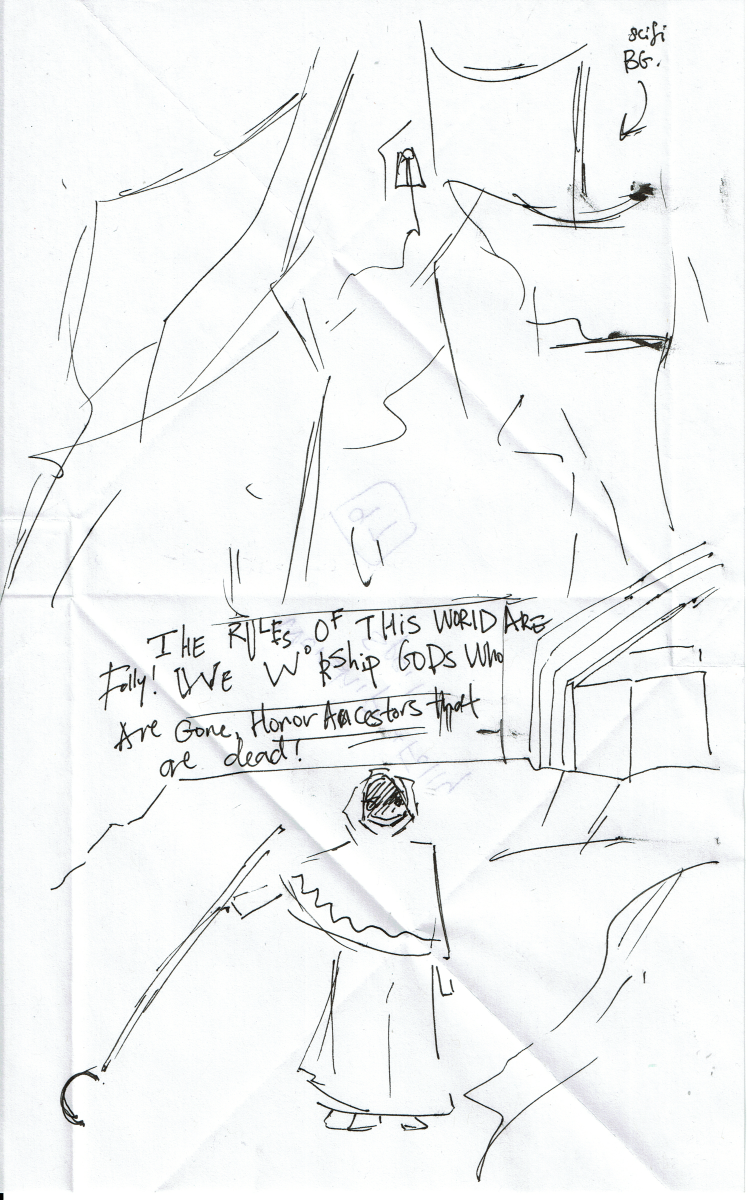 scifi
BG.
THE RULES OF THIS WORLD ARE
Folly! WE WORShip GODs Who
Are Gone, Honor Ancestors that
are dead!